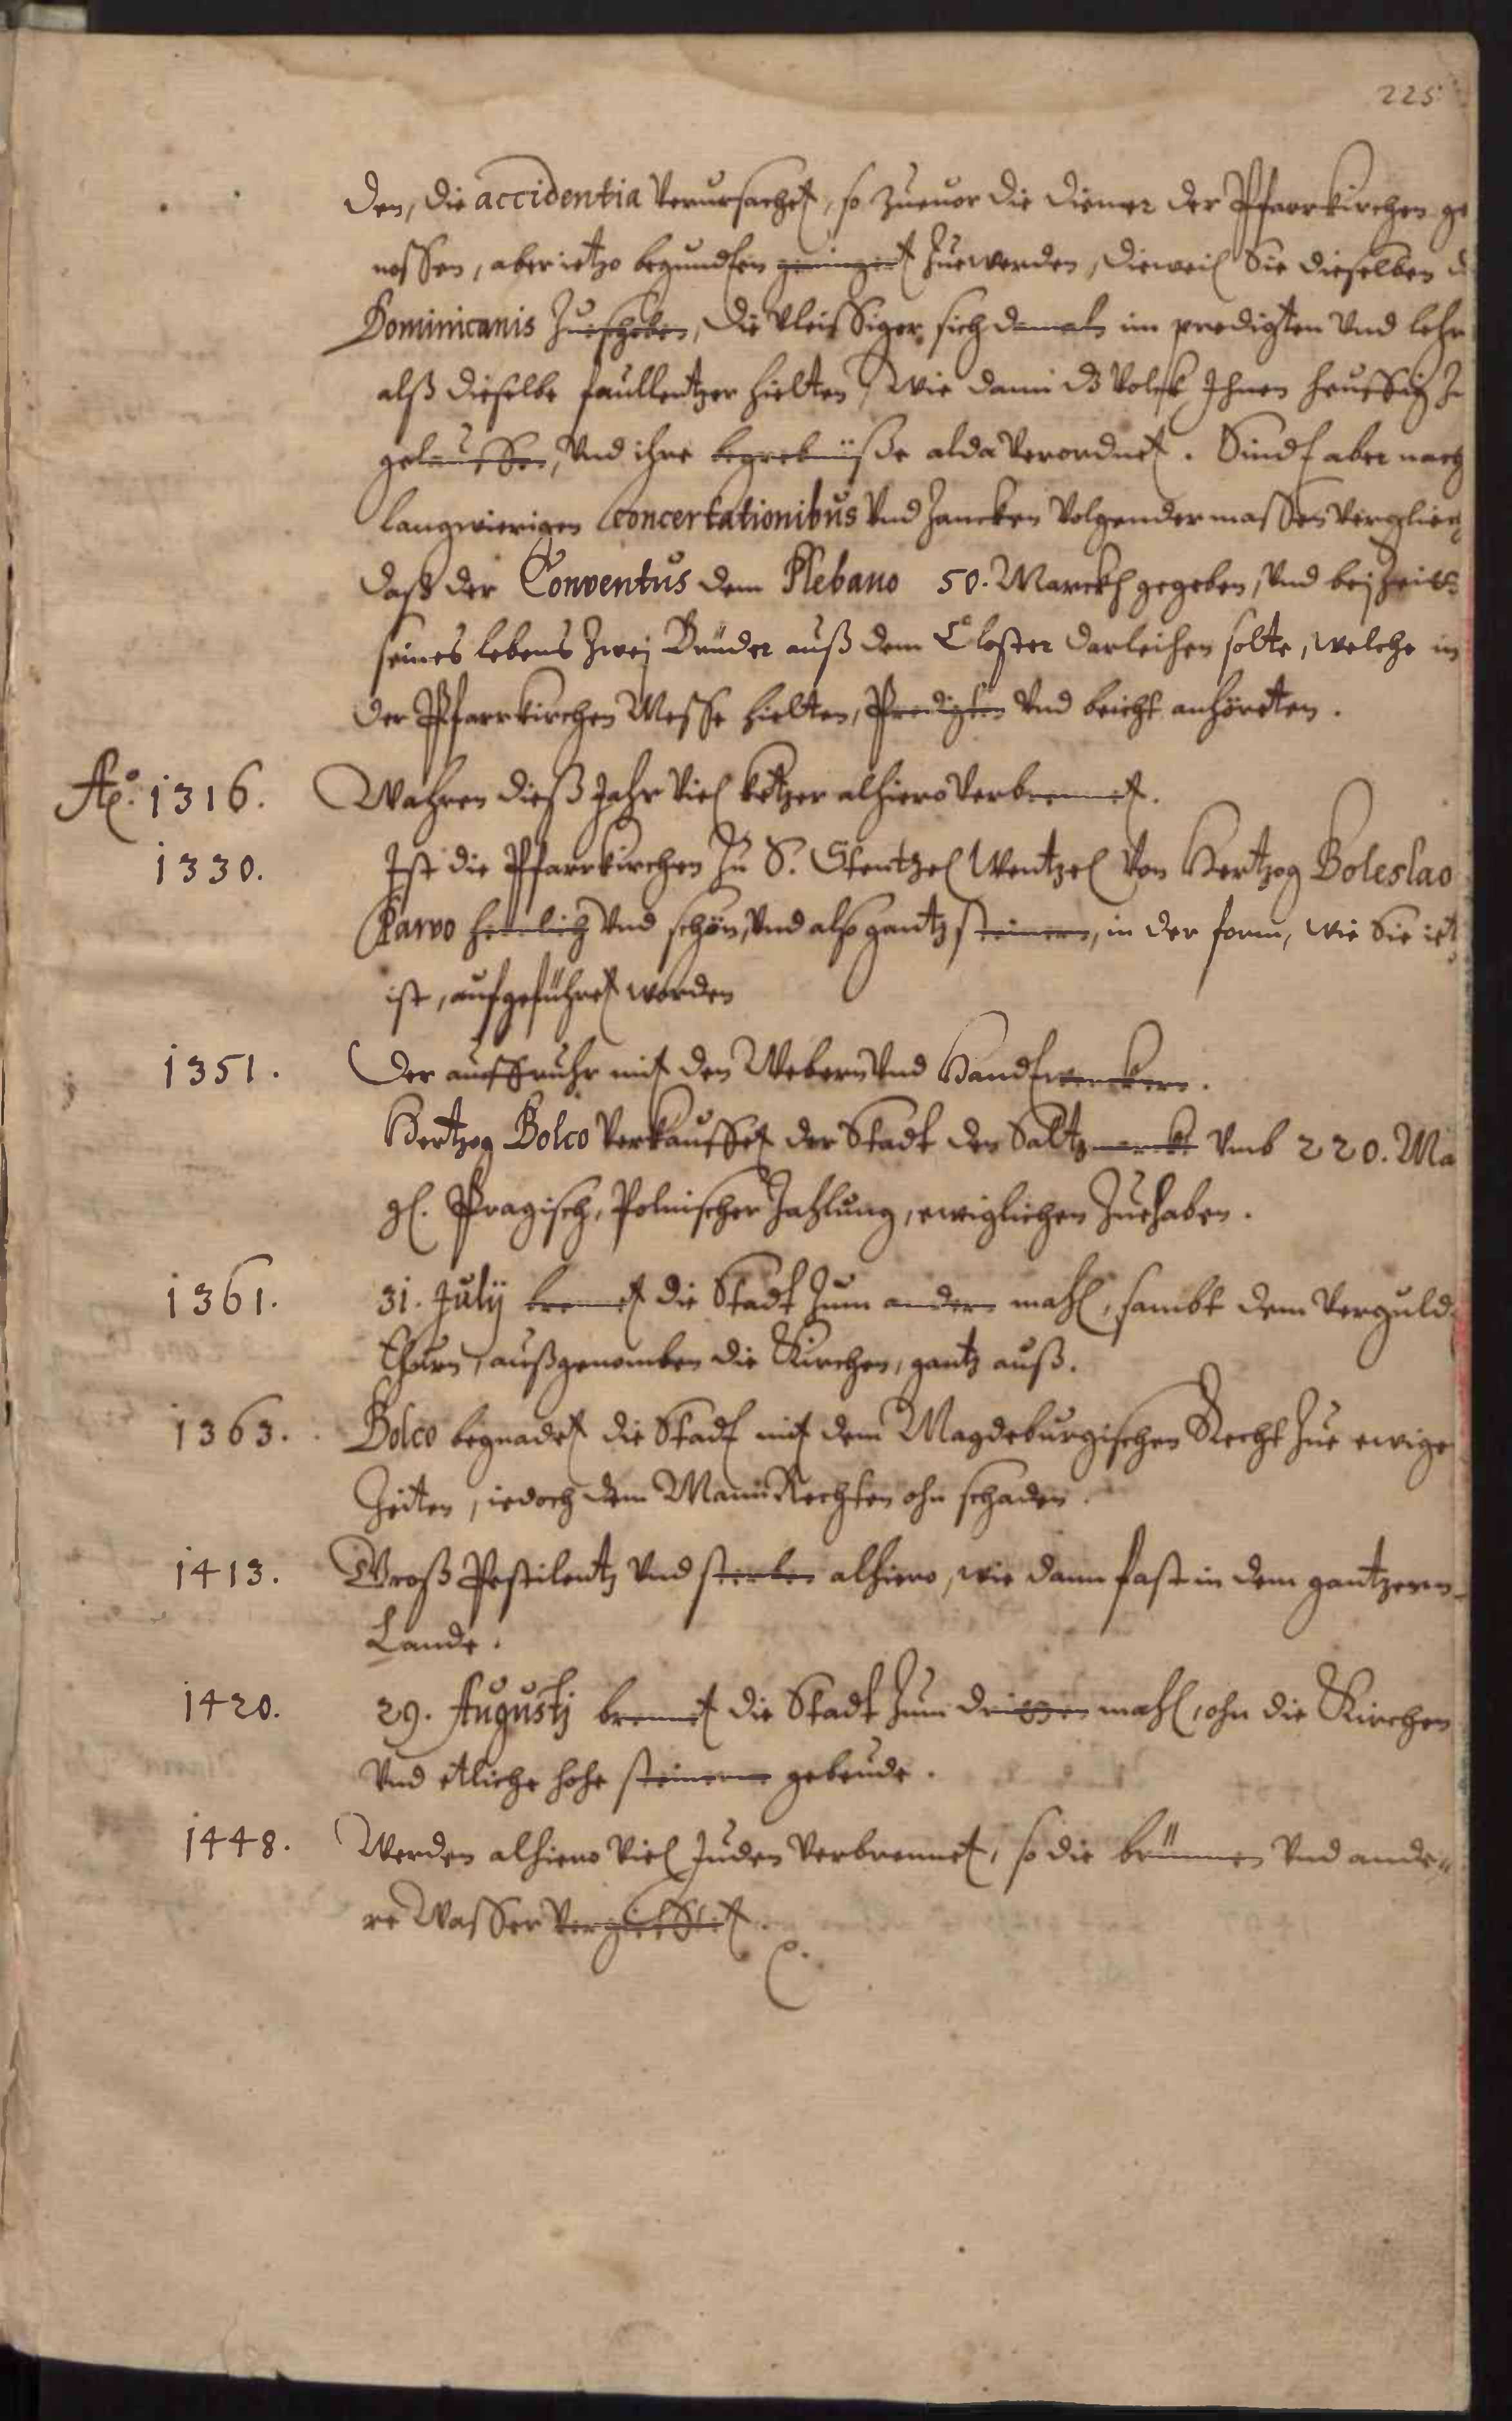 225
den, die accidentia verursachet, so zuuor die diener der Pfarrkirchen ge
nossen, aber ietzo begundten geringert zuewerden, dieweil Sie dieselben d
Dominicanis zueschoben, die vleissiger sich damals im predigten vnd lehr
alß dieselbe faullentzer hielten, wie dann dz volck Ihnen heuffig zu
gelauffen, vnd ihre begrebnüsse alda verordnet. Sindt aber nach
langwierigen concertationibus vnd Zancken volgender massen verglich
daß der Conventus dem Plebano 50. Marckh gegeben, vnd bej Zeit
seines lebens Zwej Brüder auß dem Closter darleihen solte, welche in
der Pfarrkirchen Messe hielten, Predigten vnd beicht anhöreten.
Ao. 1316. Wahren dieß Jahr viel ketzer alhiero verbrennet.
1330. Ist die Pfarrkirchen zu S. Stentzel Wentzel von Hertzog Boleslao
Parvo herrlich vnd schön, vnd also gantz steinern, in der form, wie Sie ietz
ist, aufgeführet worden
1351. Der auffruhr mit den Webern vnd Handtwerckern.
Hertzog Bolco verkauffet der Stadt den Saltzmarckt vmb 220. Ma
gl. Pragisch, Polnischer Zahlung, ewiglichen Zuehaben.
1361. 31. Julij brennet die Stadt Zum andern mahl, sambt dem verguld
thurn, außgenomben die Kirchen, gantz auß.
1363. Bolco begnadet die Stadt mit dem Magdeburgischen Recht Zue ewige
Zeiten, iedoch dem MannRechten ohn schaden.
1413. Groß Pestilentz vnd sterben alhiero, wie dann fast in dem gantzenn
Lande.
1420. 29. Augustj brennet die Stadt Zum dritten mahl, ohn die Kirchen
vnd etliche hohe steinerne gebeude.
1448. Werden alhiero viel Juden verbrennet, so die brünnen vnd ande-
re Wasser vergifftet.